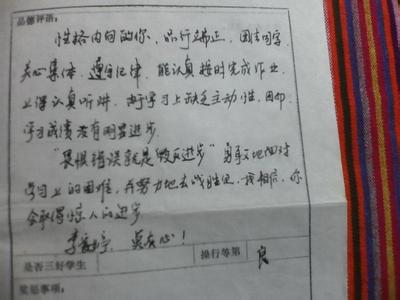 品德评语:
性格内向的你,品行端正,团结同学,
关心集体,遵守纪律,能认真按时完成作业,
上课认真听讲,由于学习上缺乏主动性,因而
学习成绩没有明显进步。
"畏惧错误就是毁灭进步"勇敢地面对
学习上的困难,并努力地去战胜它,我相信,你
会取得惊人的进步。
李 !
是否三好学生
操行等第
良
奖惩事项: